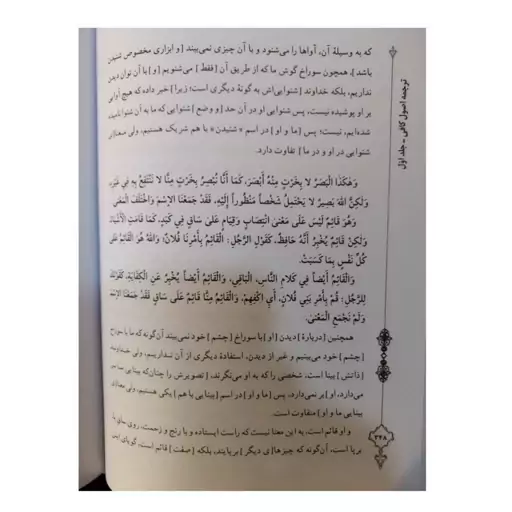 که به وسیلهٔ آن، آواها را می‌شنود و با آن چیزی نمی‌بیند [و ابزاری مخصوص شنیدن
باشد]، همچون سوراخ گوش ما که از طریق آن [فقط] می‌شنویم [و] با آن توان دیدن
نداریم، بلکه خداوند [شنوایی‌اش به گونهٔ دیگری است؛ زیرا] خبر داده که هیچ آوایی
بر او پوشیده نیست، پس شنوایی او در آن حد [و وضع] شنوایی که ما به آن شنوا نامیده
شده‌ایم، نیست؛ پس [ما و او] در اسم «شنیدن» با هم شریک هستیم، ولی معنای
شنوایی در او و در ما [تفاوت دارد.
وَ هَكَذَا الْبَصَرُ لَا بِخَرْتٍ مِنْهُ أَبْصَرَ، كَمَا أَنَّا نُبْصِرُ بِخَرْتٍ مِنَّا لَا نَنْتَفِعُ بِهِ فِي غَيْرِهِ،
وَ لَكِنَّ اللَّهَ بَصِيرٌ لَا يَحْتَمِلُ شَخْصاً مَنْظُوراً إِلَيْهِ، فَقَدْ جَمَعَنَا الِاسْمُ وَ اخْتَلَفَ الْمَعْنَى.
وَ هُوَ قَائِمٌ لَيْسَ عَلَى مَعْنَى انْتِصَابٍ وَ قِيَامٍ عَلَى سَاقٍ فِي كَبَدٍ، كَمَا قَامَتِ الْأَشْيَاءُ،
وَ لَكِنْ قَائِمٌ يُخْبِرُ أَنَّهُ حَافِظٌ، كَقَوْلِ الرَّجُلِ: الْقَائِمُ بِأَمْرِنَا فُلَانٌ، وَ اللَّهُ هُوَ الْقَائِمُ عَلَى
كُلِّ نَفْسٍ بِمَا كَسَبَتْ.
وَ الْقَائِمُ أَيْضاً فِي كَلَامِ النَّاسِ، الْبَاقِي، وَ الْقَائِمُ أَيْضاً يُخْبِرُ عَنِ الْكِفَايَةِ، كَقَوْلِكَ
لِلرَّجُلِ: قُمْ بِأَمْرِ بَنِي فُلَانٍ، أَيِ اكْفِهِمْ، وَ الْقَائِمُ مِنَّا قَائِمٌ عَلَى سَاقٍ فَقَدْ جَمَعَنَا الِاسْمُ
وَ لَمْ نَجْمَعِ الْمَعْنَى.
همچنین [دربارهٔ] دیدن [او] با سوراخ [چشم] خود نمی‌بیند آن‌گونه که ما با سوراخ
[چشم] خود می‌بینیم و غیر از دیدن، استفادهٔ دیگری از آن نداریم، ولی خداوند
[ذاتش] بینا است، شخصی را که به او می‌نگرند، [تصویرش را چنان‌که بینایی ما
دارد، او] بر نمی‌دارد، پس [ما و او] در اسم [بینایی با هم] یکی هستیم، ولی معنای
بینایی ما و او] متفاوت است.
و او قائم است، به این معنا نیست که راست ایستاده و با رنج و زحمت، روی ساق پا
بر پا است، آن‌گونه که چیزها[ی دیگر] برپایند، بلکه [صفت] قائم است، گویای این
ترجمه اصول کافی – جلد اوّل
۳۴۸